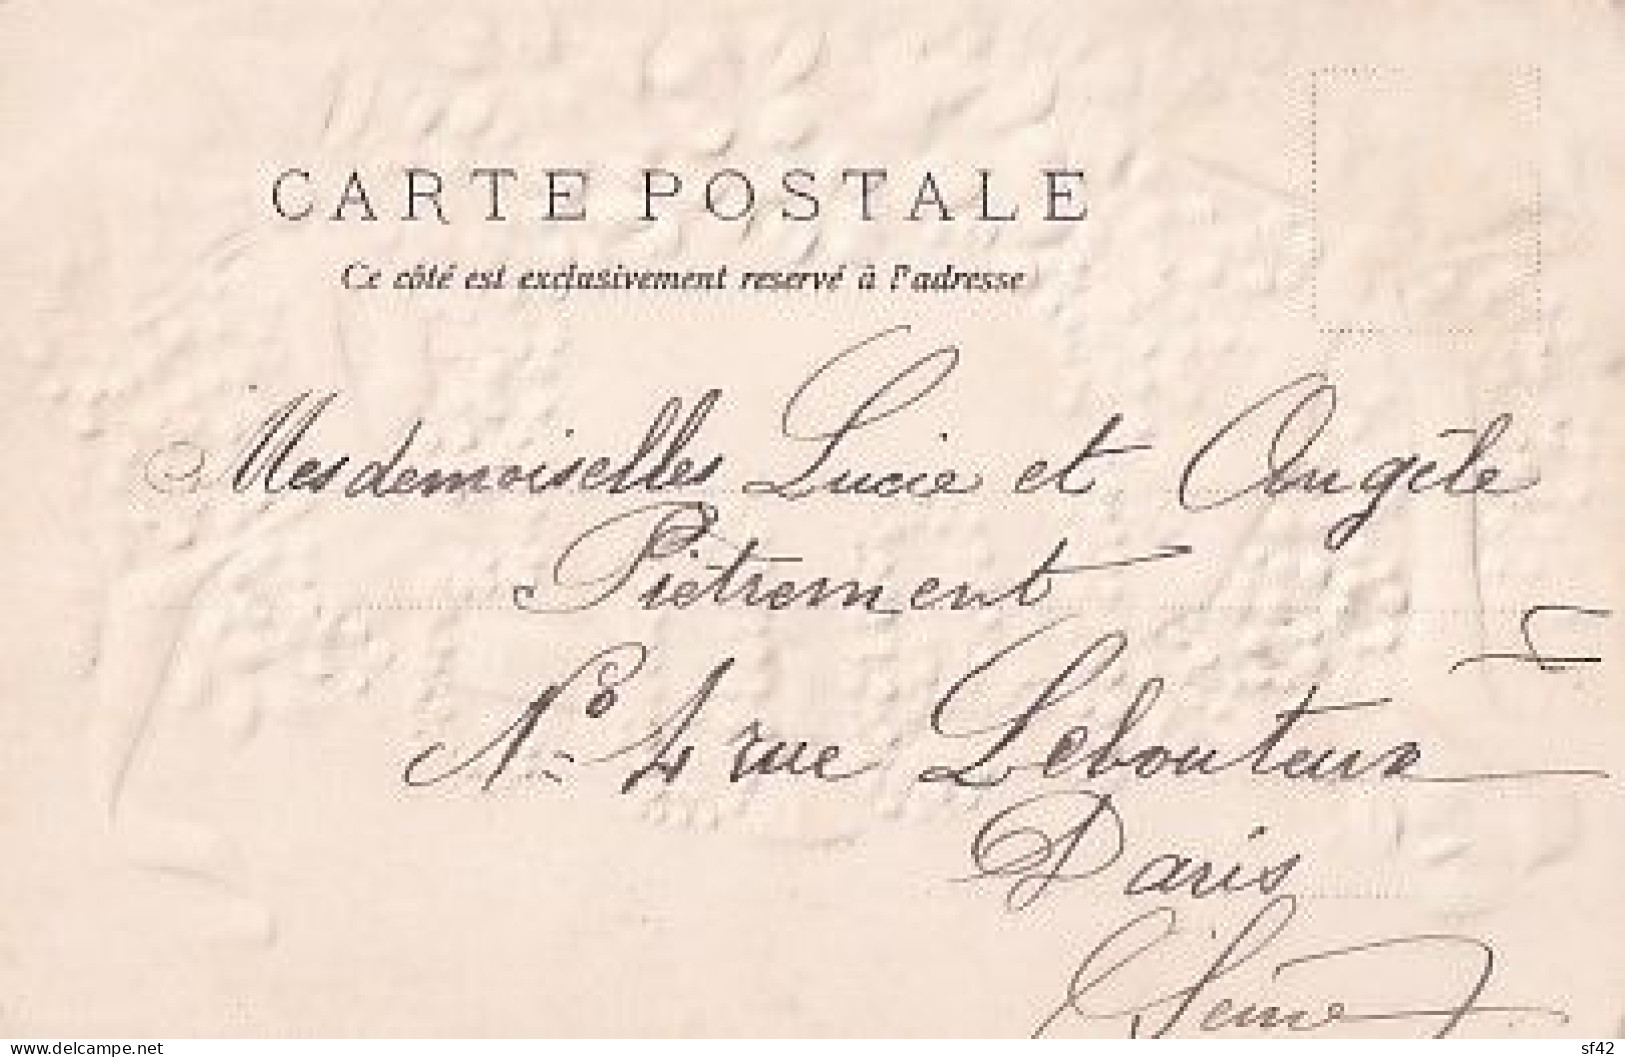 CARTE POSTALE
Ce côté est exclusivement reservé à l'adresse
Mesdemoiselles Lucie et Angèle
Piètrement
Nº 4 rue Lebouteux
Paris
Seine
www.delcampe.net
sf42